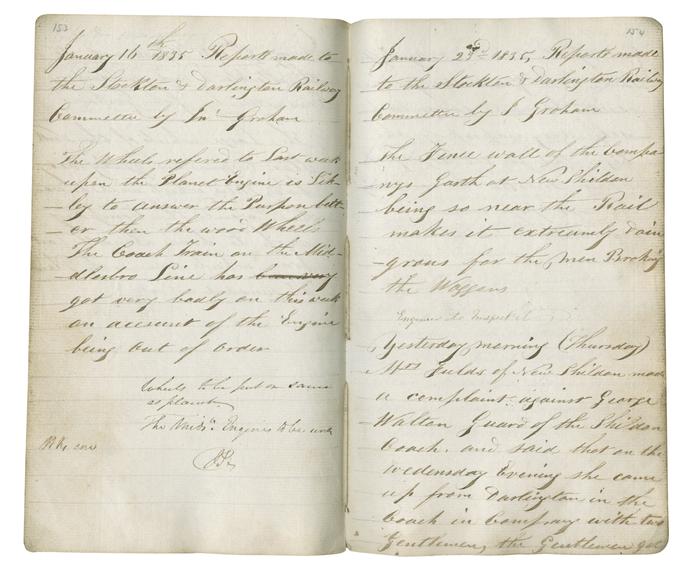 153
January 16th 1835 Reports made to
the Stockton & Darlington Railway
Committee by Jn Graham
The Wheels refered to Last week
upon the Planet Engine is Lik-
-ly to answer the Purpose bett-
-er then the wood Wheels
The Coach Train on the Mid-
-dlesbro Line has been very
got very badly on this week
on account of the Engine
being out of order
Wheels to be put on same
as planet
The Engine to be
154
January 23rd 1835, Reports made
to the Stockton & Darlington Railway
Committee by J Graham
The Fence wall of the Compa-
nys Garth at New Shildon
being so near the Rail
makes it extreamly dain
-grous for the men Breking
the Waggons
Engineer to Inspect it
Yesterday morning (Thursday)
Mrs Fields of New Shildon made
a complaint against George
Walton Guard of the Shildon
Coach. and said that on the
Wedensday Evening she came
up from Darlington in the
Coach in Company with two
Gentlemen, the Gentlemen got